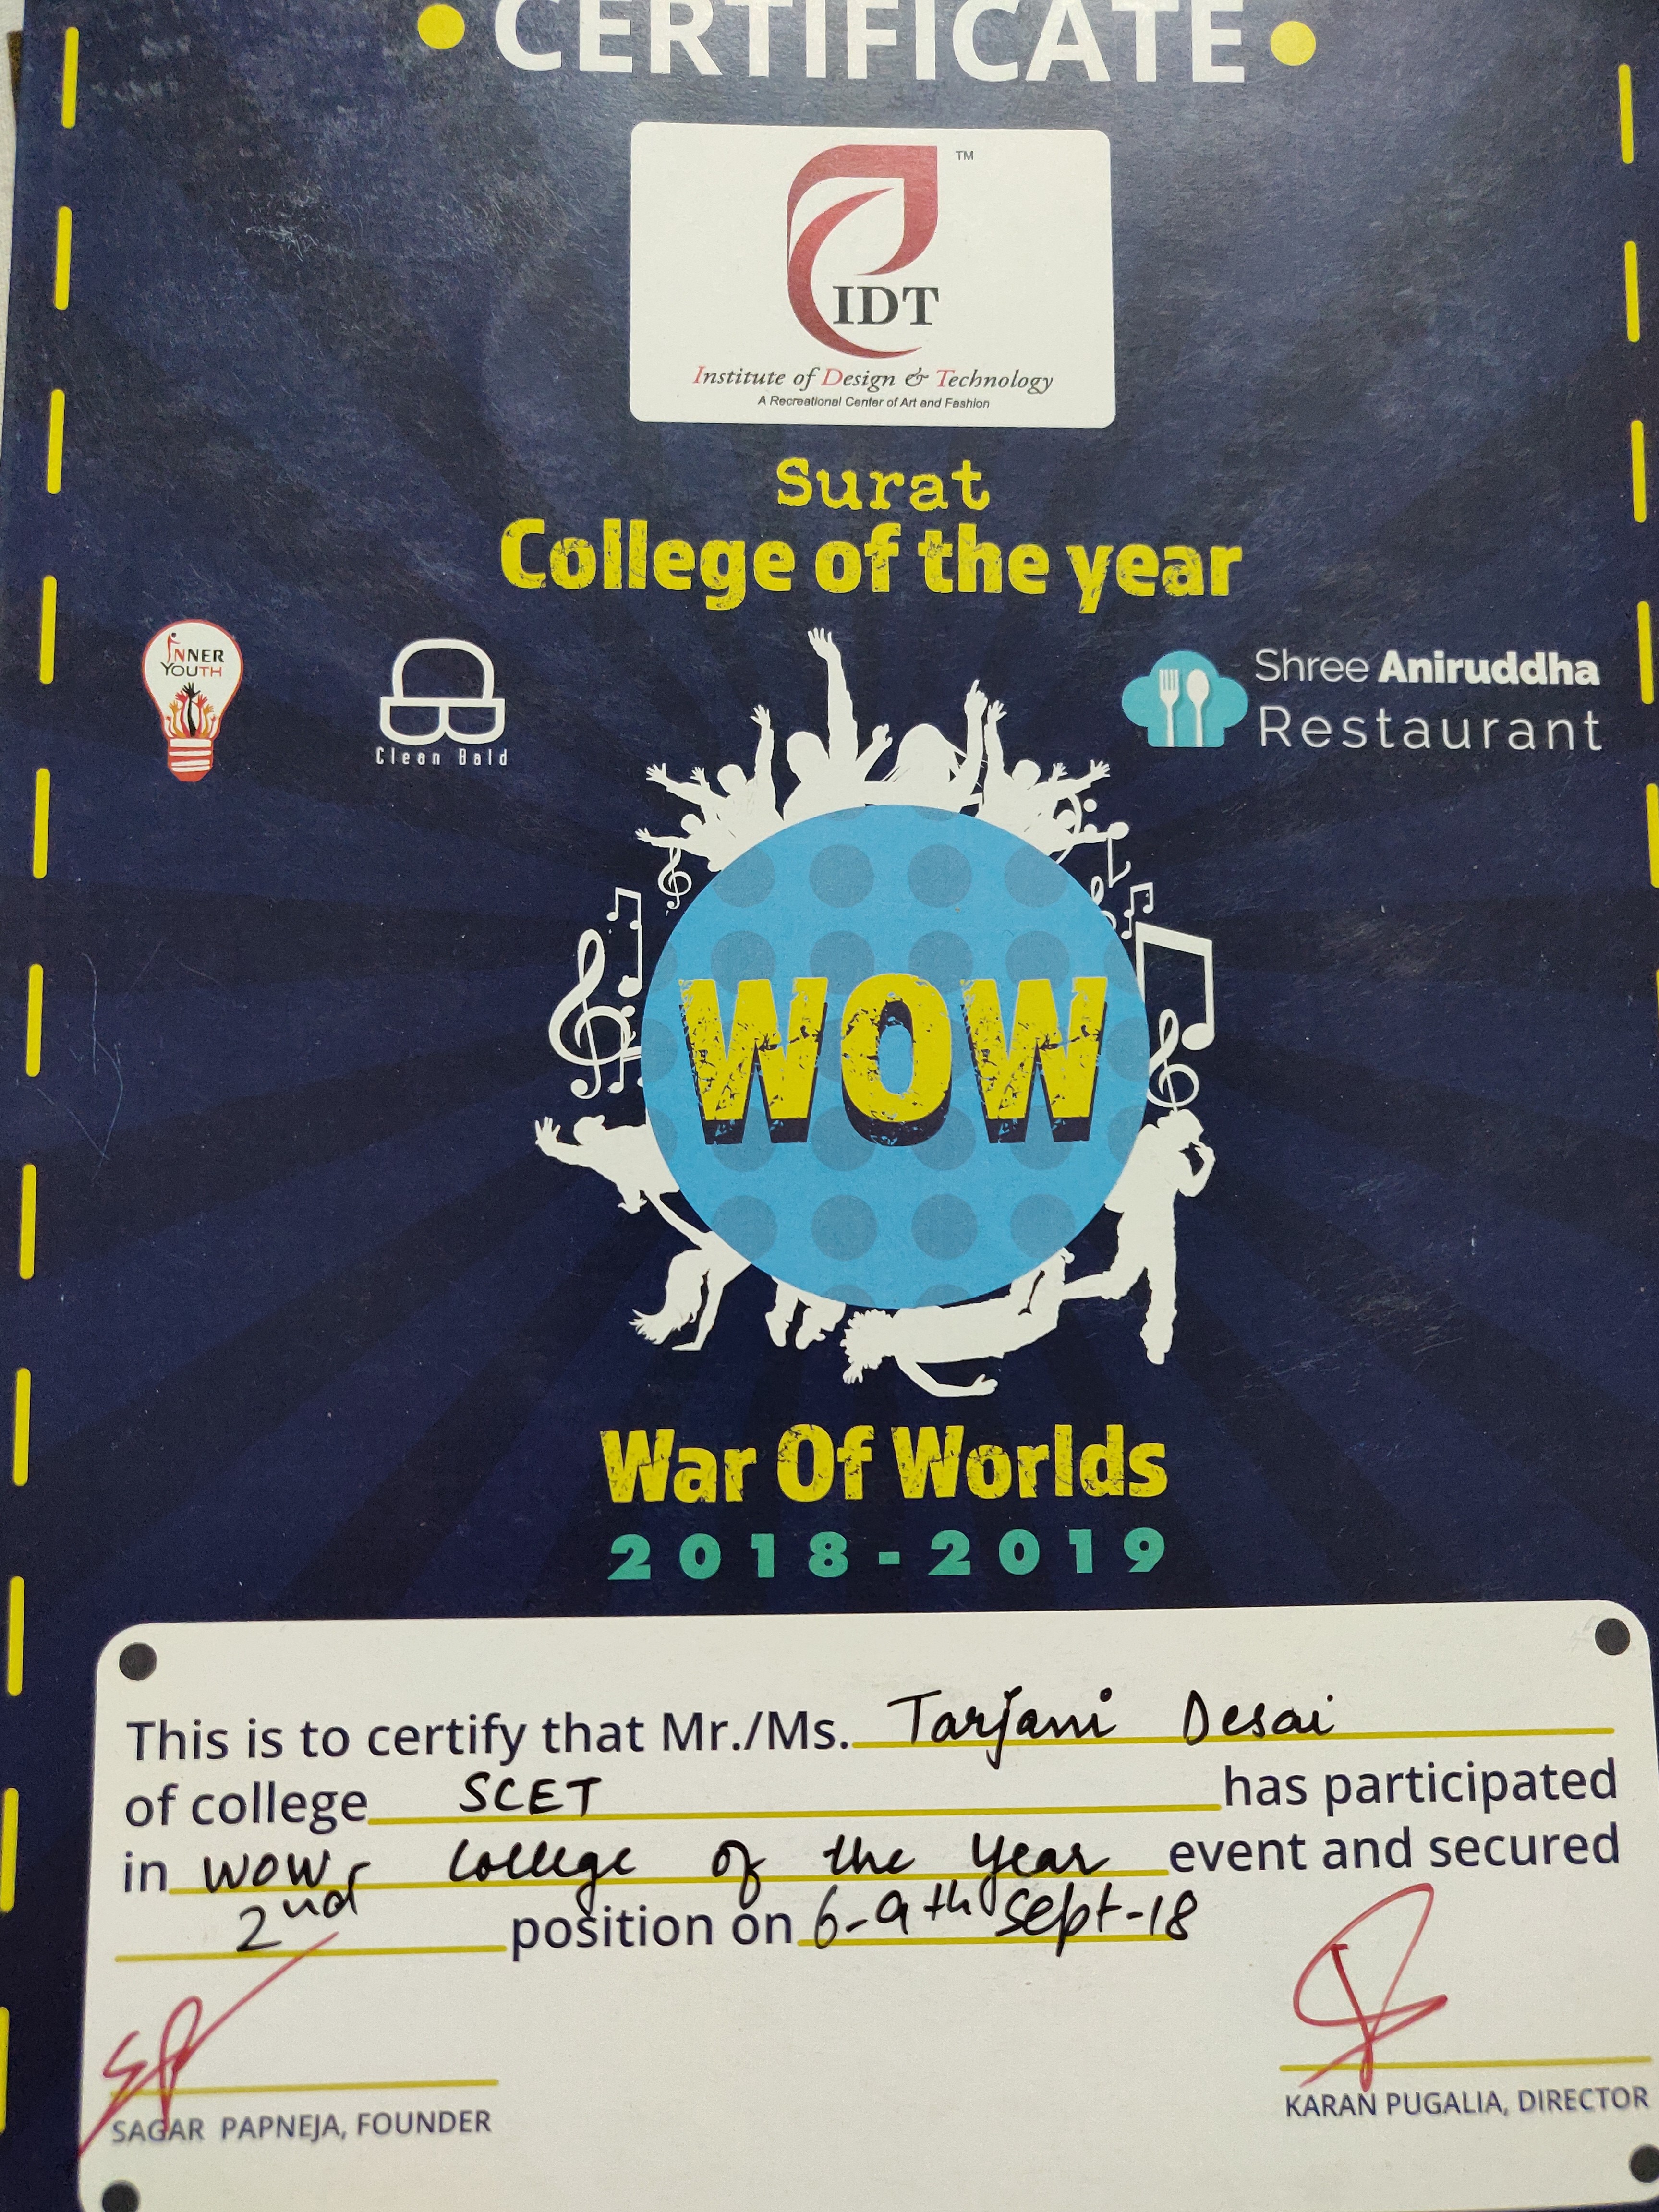 CERTIFICATE
TM
IDT
Institute of Design & Technology
A Recreational Center of Art and Fashion
Surat
College of the year
INNER
YOUTH
Clean Bald
Shree Aniruddha
Restaurant
WOW
War Of Worlds
2018-2019
This is to certify that Mr./Ms. Tarjani Desai
of college SCET has participated
in WOW College of the Year event and secured
2nd position on 6-9th Sept-18
SAGAR PAPNEJA, FOUNDER
KARAN PUGALIA, DIRECTOR